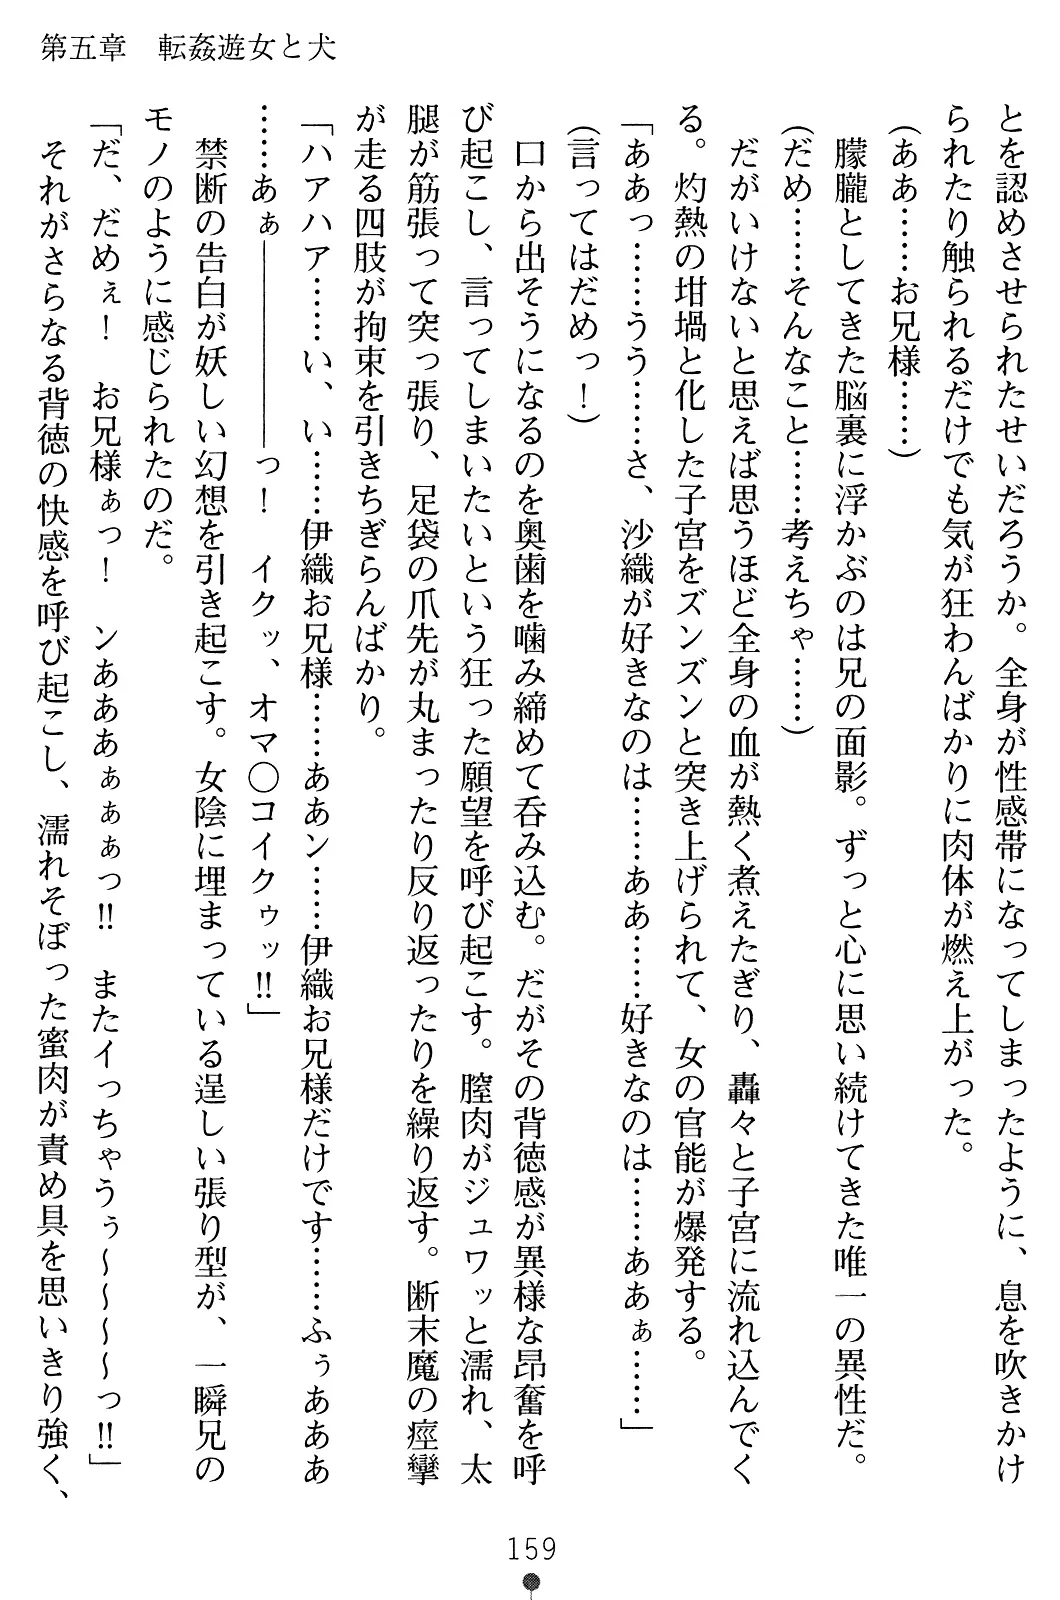 第五章　転姦遊女と犬
とを認めさせられたせいだろうか。全身が性感帯になってしまったように、息を吹きかけ
られたり触られるだけでも気が狂わんばかりに肉体が燃え上がった。
(ああ……お兄様……)
朦朧としてきた脳裏に浮かぶのは兄の面影。ずっと心に思い続けてきた唯一の異性だ。
(だめ……そんなこと……考えちゃ……)
だがいけないと思えば思うほど全身の血が熱く煮えたぎり、轟々と子宮に流れ込んでく
る。灼熱の坩堝と化した子宮をズンズンと突き上げられて、女の官能が爆発する。
「ああっ……うう……さ、沙織が好きなのは……ああ……好きなのは……あぁぁ……」
(言ってはだめっ！)
口から出そうになるのを奥歯を噛み締めて呑み込む。だがその背徳感が異様な昂奮を呼
び起こし、言ってしまいたいという狂った願望を呼び起こす。膣肉がジュワッと濡れ、太
腿が筋張って突っ張り、足袋の爪先が丸まったり反り返ったりを繰り返す。断末魔の痙攣
が走る四肢が拘束を引きちぎらんばかり。
「ハアハア……い、い……伊織お兄様……ああン……伊織お兄様だけです……ふぅあああ
……あぁ――――――っ！　イクッ、オマ○コイクゥッ!!」
禁断の告白が妖しい幻想を引き起こす。女陰に埋まっている逞しい張り型が、一瞬兄の
モノのように感じられたのだ。
「だ、だめぇ！　お兄様ぁっ！　ンあああぁぁぁっ!!　またイっちゃうぅ～～～～っ!!」
それがさらなる背徳の快感を呼び起こし、濡れそぼった蜜肉が責め具を思いきり強く、
159